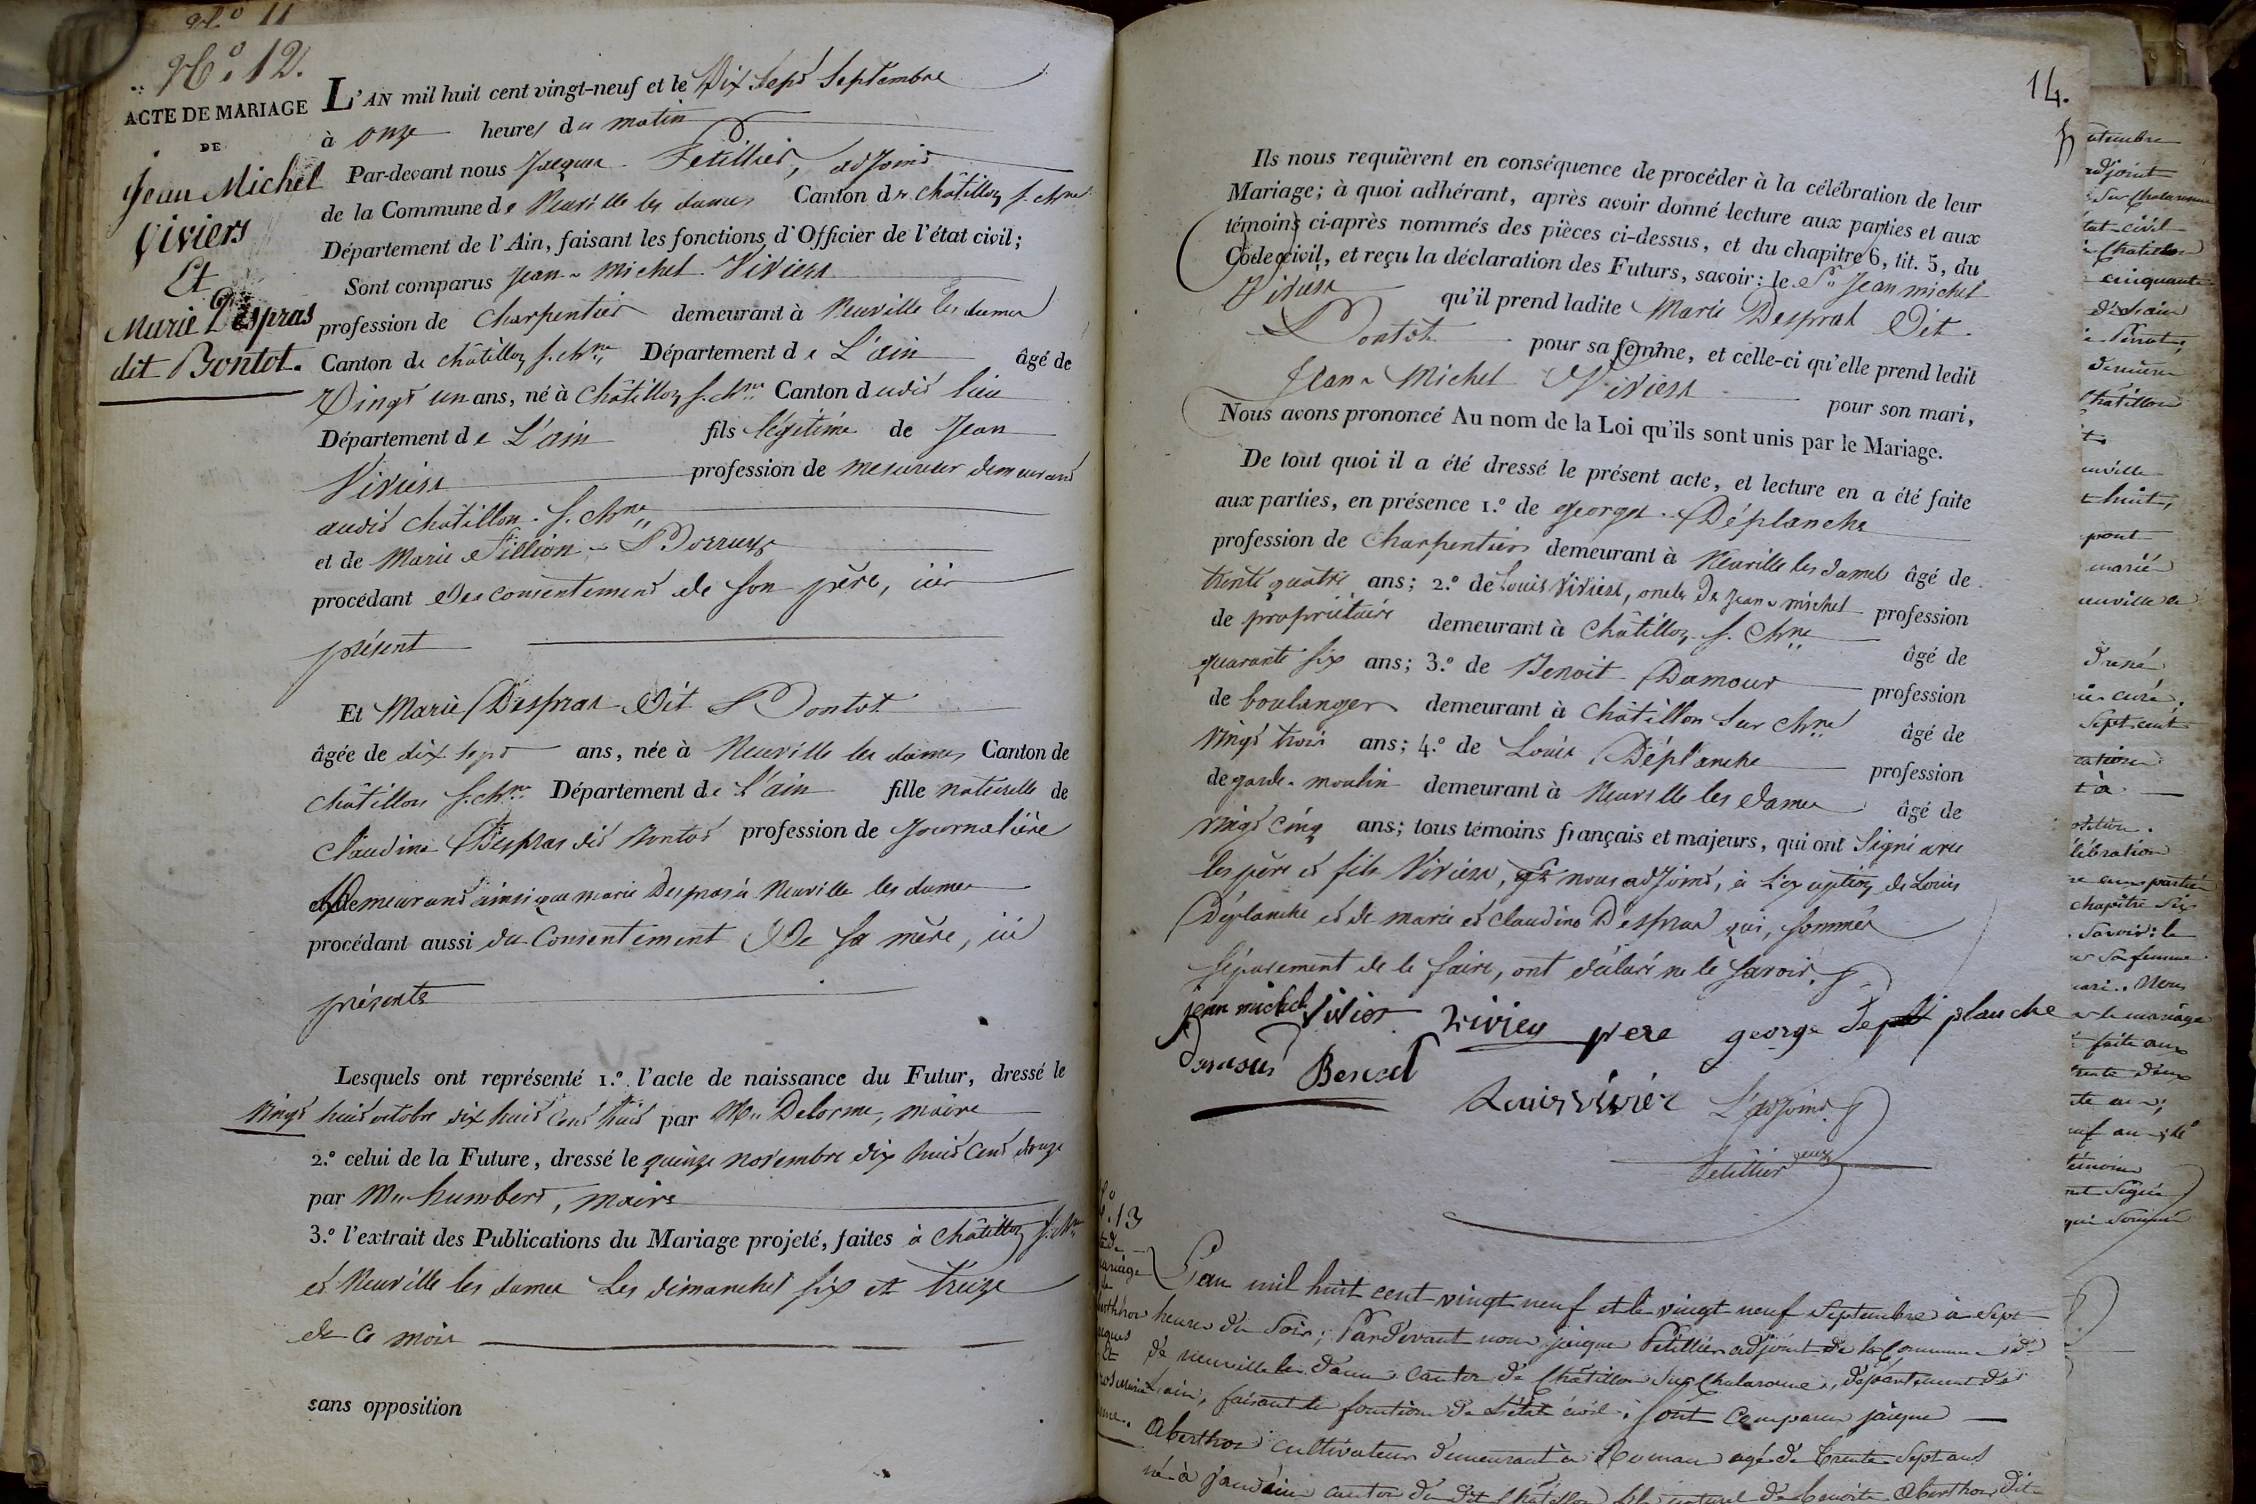 N.o 11
N.o 12.
ACTE DE MARIAGE
DE
Jean Michel
Viviers
Et
Marie Despras
dit Bontot.
L'AN mil huit cent vingt-neuf et le Dix sept septembre
à onze heures du matin
Par-devant nous Jacques Petillier, adjoint
de la Commune de Neuville les dames Canton de châtillon s. chne
Département de l'Ain, faisant les fonctions d'Officier de l'état civil;
Sont comparus Jean-Michel Viviers
profession de Charpentier demeurant à Neuville les dames
Canton de châtillon s. chne Département de L'ain âgé de
Vingt un ans, né à Châtillon s. chne Canton dudit lieu
Département de L'ain fils légitime de Jean
Viviers profession de mesureur demeurant
audit châtillon s. chne
et de Marie Fillion
procédant du consentement de son père, ici
présent
Et Marie Despras Dit Bontot
âgée de dix sept ans, née à Neuville les dames Canton de
châtillon s. chne Département de l'ain fille naturelle de
Claudine Despras dit Bontot profession de Journalière
demeurant ainsi que marie Despras à Neuville les dames
procédant aussi du Consentement De sa mère, ici
présente
Lesquels ont représenté 1.o l'acte de naissance du Futur, dressé le
vingt huit octobre dix huit cent huit par Mr Delorme, maire
2.o celui de la Future, dressé le quinze novembre dix huit cent douze
par Mr humbert, maire
3.o l'extrait des Publications du Mariage projeté, faites à Châtillon s. chne
et Neuville les dames Les dimanches six et treize
de ce mois
sans opposition
14.
Ils nous requièrent en conséquence de procéder à la célébration de leur
Mariage; à quoi adhérant, après avoir donné lecture aux parties et aux
témoins ci-après nommés des pièces ci-dessus, et du chapitre 6, tit. 5, du
Code civil, et reçu la déclaration des Futurs, savoir: le Sr Jean michel
Viviers qu'il prend ladite Marie Despras Dit
Bontot pour sa femme, et celle-ci qu'elle prend ledit
Jean-Michel Viviers pour son mari,
Nous avons prononcé Au nom de la Loi qu'ils sont unis par le Mariage.
De tout quoi il a été dressé le présent acte, et lecture en a été faite
aux parties, en présence 1.o de george Déplanche
profession de Charpentier demeurant à Neuville les dames âgé de
trente quatre ans; 2.o de Louis Viviers, oncle De Jean-michel profession
de propriétaire demeurant à Châtillon s. chne âgé de
quarante six ans; 3.o de Benoit Damour profession
de boulanger demeurant à Châtillon sur chne âgé de
vingt trois ans; 4.o de Louis Déplanche profession
de garde-moulin demeurant à Neuville les dames âgé de
vingt cinq ans; tous témoins français et majeurs, qui ont signé avec
les père et fils Viviers, et nous adjoint, à l'exception de Louis
Déplanche et de marie et claudine Despras qui, sommés
séparement de le faire, ont déclaré ne le savoir.
jean michel Vivier viviey pere george de planche
Louis vivier L'adjoint
Petillier
13
L'an mil huit cent vingt neuf et le vingt neuf Septembre à Sept
heures du Soir; Pardevant nous jacque Petillier adjoint de la Commune de
de neuville les dames canton de Châtillon Sur Chalaronne, département de
l'ain, faisant les fonctions de l'état civil. Sont comparus jacque
Aberthon cultivateur demeurant à Romans agé de trente Sept ans